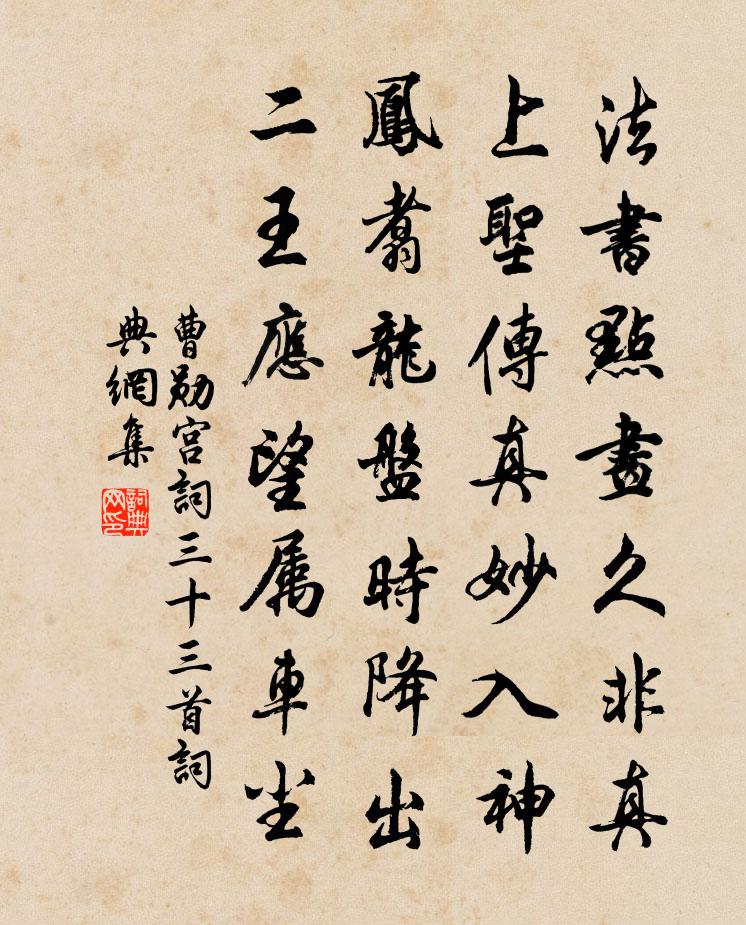 法書點畫久非真
上聖傳真妙入神
鳳翥龍盤時降出
二王應望属車尘
曹勛宫詞三十三首詞
典網集
詞典
网印